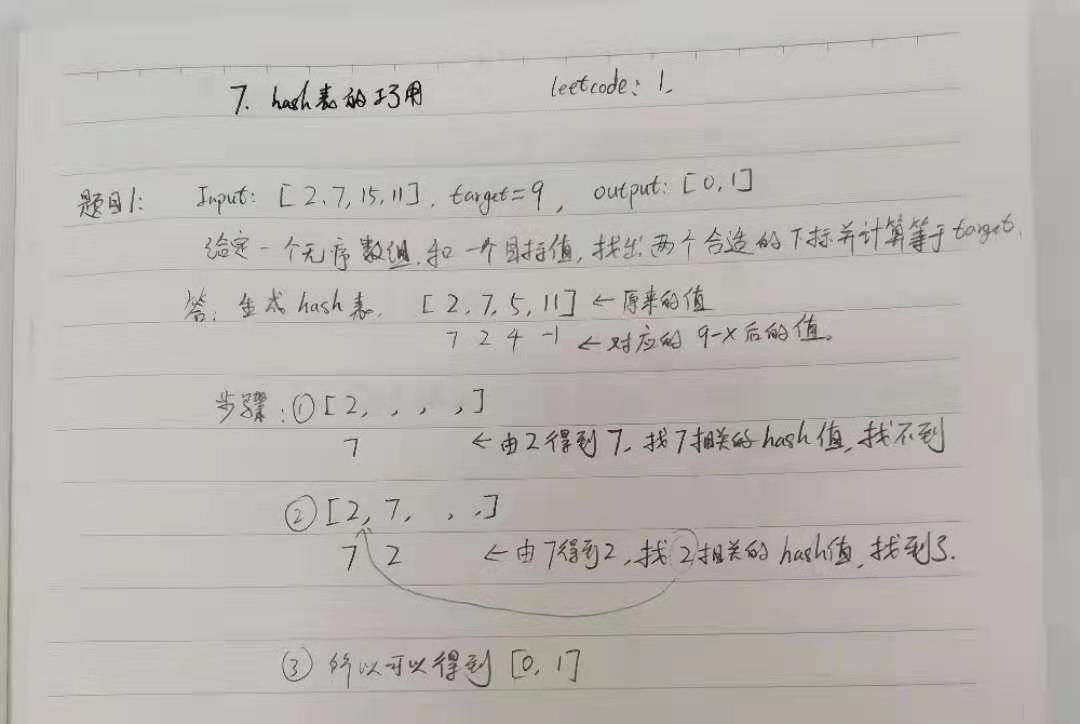 7. hash表的巧用 leetcode: 1.
题目1: Input: [2,7,15,11], target=9, output: [0,1]
给定一个无序数组,和一个目标值,找出两个合适的下标并计算等于target.
答: 生成hash表, [2,7,5,11] ←原来的值
7 2 4 -1 ←对应的9-x后的值。
步骤: ①[2, , , ,]
7 ←由2得到7,找7相关的hash值,找不到
②[2,7, , ,]
7 2 ←由7得到2,找2相关的hash值,找到了.
③ 所以可以得到[0,1]